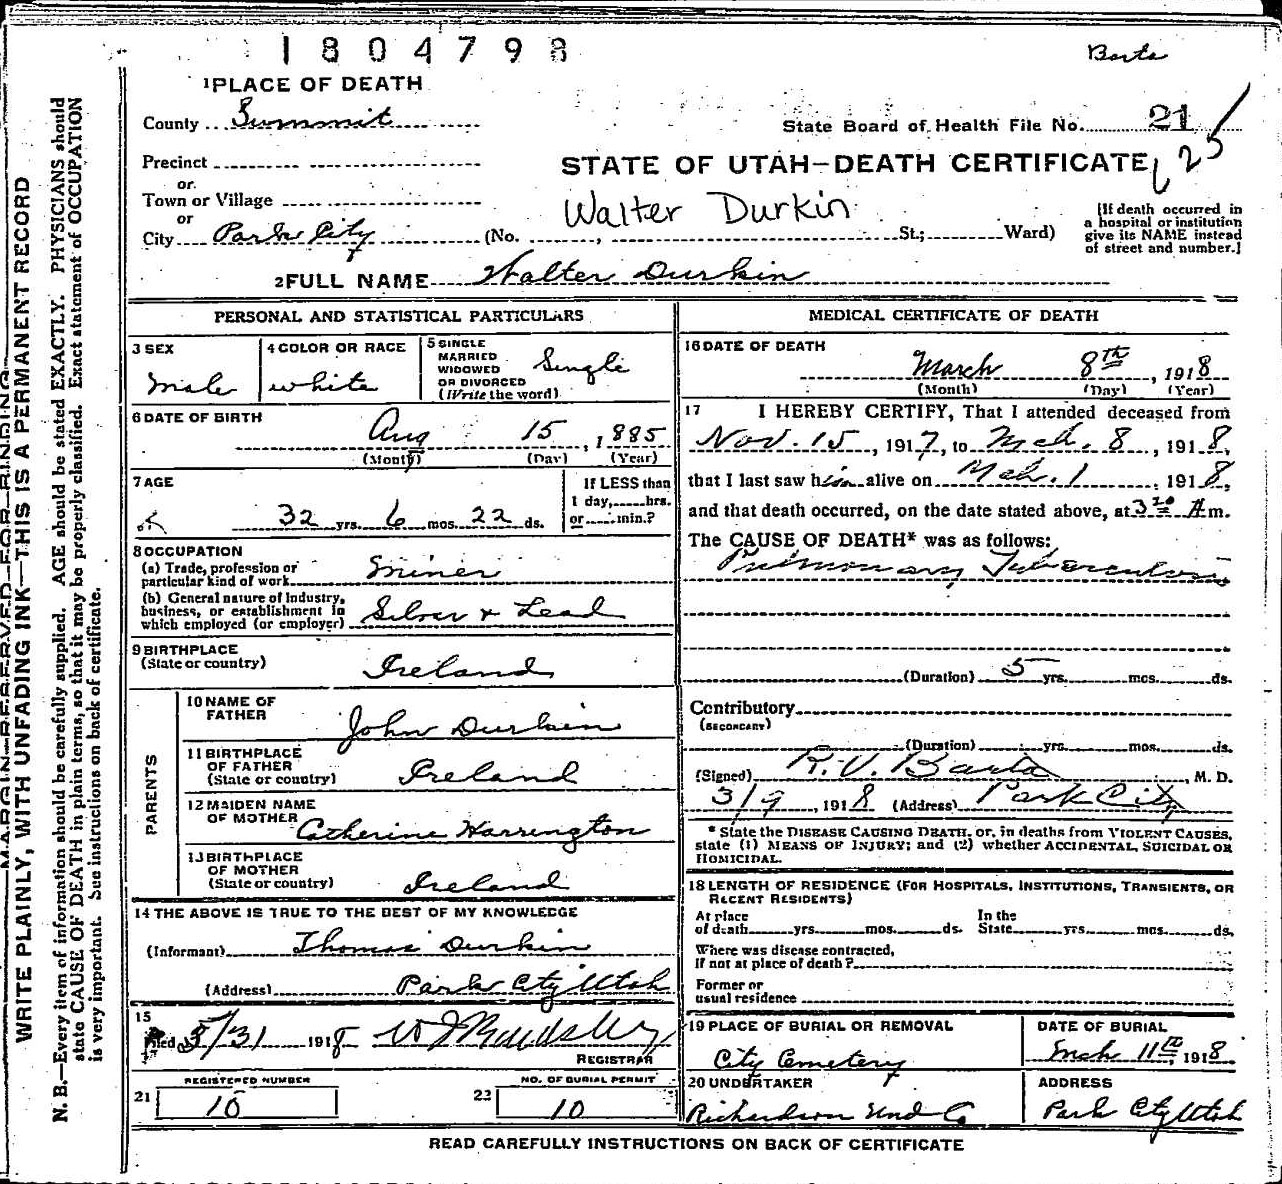 1804798
Barta
1 PLACE OF DEATH
County Summit
State Board of Health File No. 21
125
Precinct
or
STATE OF UTAH—DEATH CERTIFICATE
Town or Village
or
Walter Durkin
City Park City (No. , St.; Ward)
[If death occurred in a hospital or institution give its NAME instead of street and number.]
2 FULL NAME Walter Durkin
PERSONAL AND STATISTICAL PARTICULARS
3 SEX
male
4 COLOR OR RACE
white
5 SINGLE
MARRIED
WIDOWED
OR DIVORCED
(Write the word)
Single
6 DATE OF BIRTH
Aug 15, 1885
(Month) (Day) (Year)
7 AGE
32 yrs. 6 mos. 22 ds.
If LESS than
1 day, hrs.
or min.?
8 OCCUPATION
(a) Trade, profession or
particular kind of work Miner
(b) General nature of Industry,
business, or establishment in
which employed (or employer) Silver & Lead
9 BIRTHPLACE
(State or country)
Ireland
PARENTS
10 NAME OF
FATHER
John Durkin
11 BIRTHPLACE
OF FATHER
(State or country) Ireland
12 MAIDEN NAME
OF MOTHER Catherine Harrington
13 BIRTHPLACE
OF MOTHER
(State or country) Ireland
14 THE ABOVE IS TRUE TO THE BEST OF MY KNOWLEDGE
(Informant) Thomas Durkin
(Address) Park City Utah
15
Filed 3/31 1918
REGISTRAR
REGISTERED NUMBER
21 10
NO. OF BURIAL PERMIT
22 10
MEDICAL CERTIFICATE OF DEATH
16 DATE OF DEATH
March 8th, 1918
(Month) (Day) (Year)
17 I HEREBY CERTIFY, That I attended deceased from
Nov. 15, 1917, to Mch. 8, 1918,
that I last saw him alive on Mch. 1, 1918,
and that death occurred, on the date stated above, at 3 20 A m.
The CAUSE OF DEATH* was as follows:
Pulmonary Tuberculosis
(Duration) 5 yrs. mos. ds.
Contributory
(SECONDARY)
(Duration) yrs. mos. ds.
(Signed) R. V. Barta, M. D.
3/9, 1918 (Address) Park City
* State the DISEASE CAUSING DEATH, or, in deaths from VIOLENT CAUSES,
state (1) MEANS OF INJURY; and (2) whether ACCIDENTAL, SUICIDAL OR
HOMICIDAL.
18 LENGTH OF RESIDENCE (FOR HOSPITALS, INSTITUTIONS, TRANSIENTS, OR
RECENT RESIDENTS)
At place
of death yrs. mos. ds.
In the
State yrs. mos. ds.
Where was disease contracted,
If not at place of death?
Former or
usual residence
19 PLACE OF BURIAL OR REMOVAL
City Cemetery
DATE OF BURIAL
Mch 11th, 1918
20 UNDERTAKER
Richardson Und Co.
ADDRESS
Park City Utah
READ CAREFULLY INSTRUCTIONS ON BACK OF CERTIFICATE
MARGIN RESERVED FOR BINDING
WRITE PLAINLY, WITH UNFADING INK—THIS IS A PERMANENT RECORD
N. B.—Every item of information should be carefully supplied. AGE should be stated EXACTLY. PHYSICIANS should
state CAUSE OF DEATH in plain terms, so that it may be properly classified. Exact statement of OCCUPATION
is very important. See instructions on back of certificate.